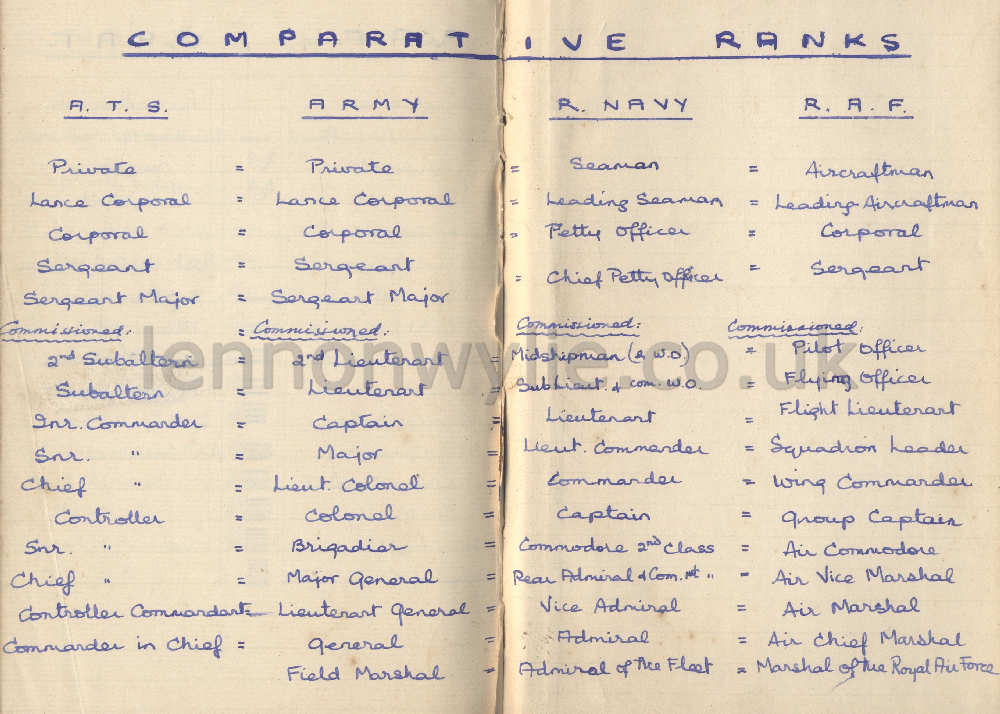 COMPARATIVE RANKS
A. T. S. ARMY R. NAVY R. A. F.
Private = Private = Seaman = Aircraftman
Lance Corporal = Lance Corporal = Leading Seaman = Leading Aircraftman
Corporal = Corporal = Petty Officer = Corporal
Sergeant = Sergeant = Chief Petty Officer = Sergeant
Sergeant Major = Sergeant Major
Commissioned: = Commissioned: Commissioned: Commissioned:
2nd Subaltern = 2nd Lieutenant = Midshipman (& W.O) = Pilot Officer
Subaltern = Lieutenant = Sub Lieut. & com. W.O. = Flying Officer
Jnr. Commander = Captain = Lieutenant = Flight Lieutenant
Snr. " = Major = Lieut. Commander = Squadron Leader
Chief " = Lieut. Colonel = Commander = Wing Commander
Controller = Colonel = Captain = Group Captain
Snr. " = Brigadier = Commodore 2nd Class = Air Commodore
Chief " = Major General = Rear Admiral & Com. 1st " = Air Vice Marshal
Controller Commandant = Lieutenant General = Vice Admiral = Air Marshal
Commander in Chief = General = Admiral = Air Chief Marshal
Field Marshal = Admiral of the Fleet = Marshal of the Royal Air Force
lennonwylie.co.uk